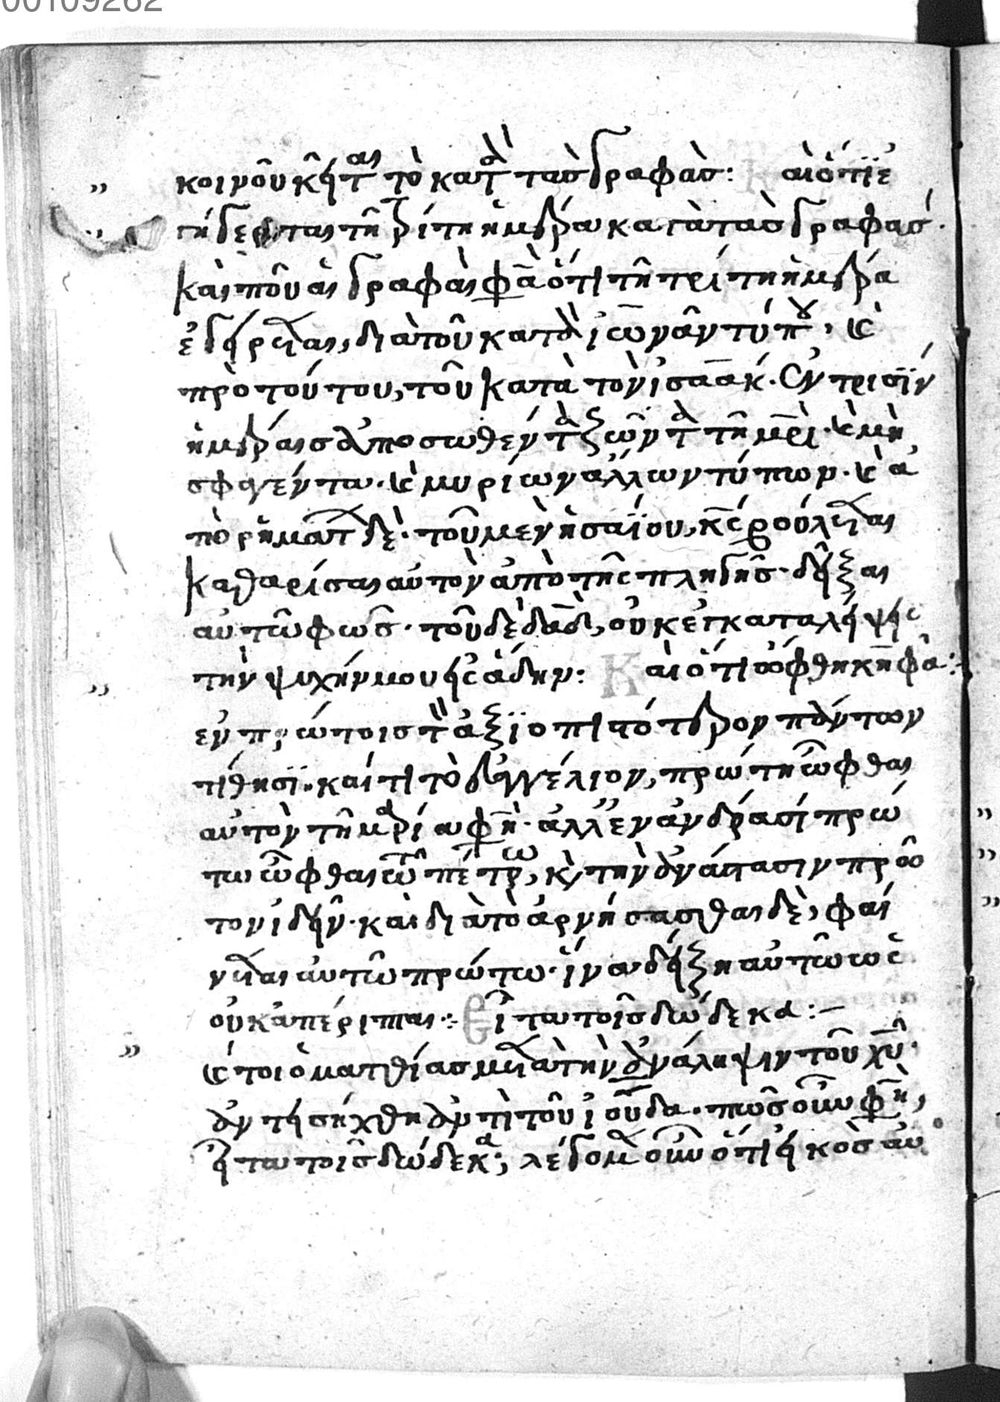 00109262
κοινοῦ κεῖται τὸ κατὰ τὰς γραφάς: Καὶ ὅτι ἐ
γήγερται τῇ τρίτῃ ἡμέρα κατὰ τὰς γραφάς.
καὶ ποῦ αἱ γραφαὶ φασὶν ὅτι τῇ τρίτη ἡμέρα
ἐγείρεται, διὰ τοῦ κατὰ ἰωνᾶν τύπου, καὶ
πρὸ τούτου, τοῦ κατὰ τὸν ἰσαάκ. ἐν τρισὶν
ἡμέραις ἀποσωθέντα ζῶντα τῇ μητρὶ. καὶ μὴ
σφαγέντα. καὶ μυρίων ἄλλων τύπων. καὶ ἀ
πὸ ῥημάτων δέ. τοῦ μὲν ἡσαΐου, κύριος βούλεται
καθαρίσαι αὐτὸν ἀπὸ τῆς πληγῆς. δεῖξαι
αὐτῶ φῶς. τοῦ δὲ δαδ, οὐκ ἐγκαταλείψεις
τὴν ψυχήν μου εἰς ἅδην: Καὶ ὅτι ὤφθη κηφᾶ:
ἐν πρώτοις τὸν ἀξιοπιστότερον πάντων
τίθησι. καίτι τὸ εὐαγγέλιον, πρώτη ὦφθαι
αὐτὸν τῇ μαρία φησὶ. ἀλλ' ἐν ἀνδράσι πρώ
τω ὦφθαι τῶ πέτρω, καὶ τὴν ἀνάστασιν πρῶ
τον ἰδεῖν. καὶ διὰ τὸ ἀρνήσασθαι δὲ, φαί
νεται αὐτῶ πρώτω. ἵνα δείξη αὐτῶ ὡς
οὐκ ἀπέριπται: Εἶτα τοῖς δώδεκα:
καίτοι ὁ ματθίας μετὰ τὴν ἀνάληψιν τοῦ χυ.
ἀντεισήχθη ἀντὶ τοῦ ἰούδα. πῶς οὖν φησὶ,
εἶτα τοῖς δώδεκα; λέγομεν οὖν ὅτι εἰκὸς αὐ